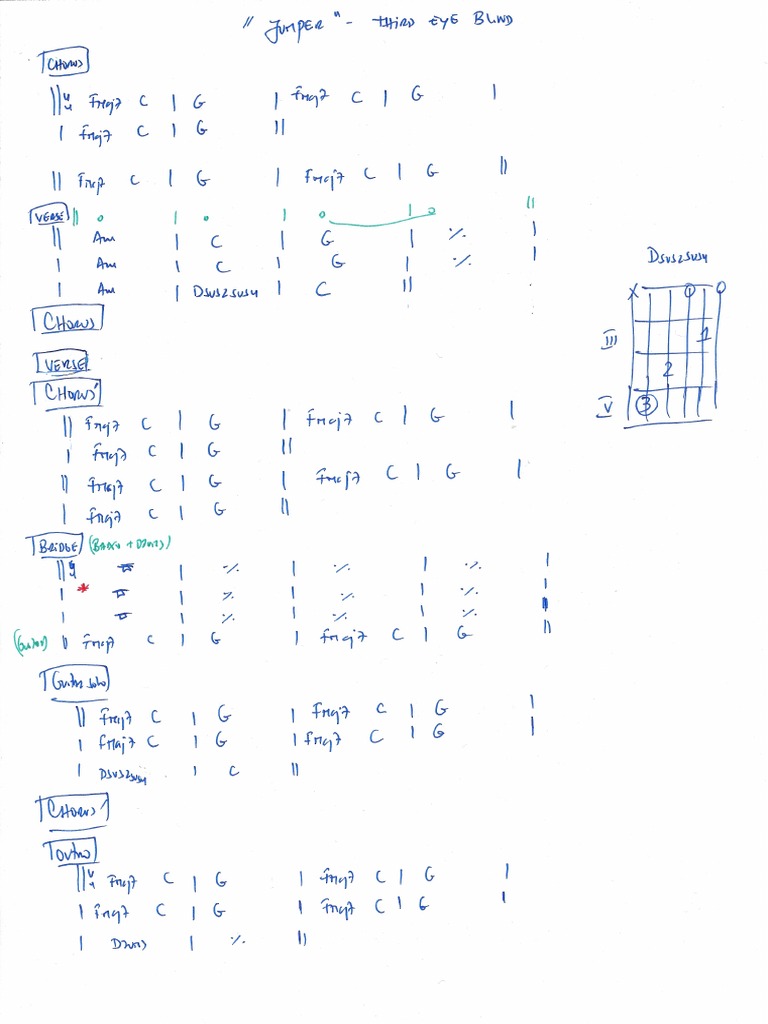 "JUMPER" - THIRD EYE BLIND
CHORUS
||4/4 Fmaj7 C | G | Fmaj7 C | G |
| Fmaj7 C | G ||
|| Fmaj7 C | G | Fmaj7 C | G ||
VERSE || o | o | o | o ||
|| Am | C | G | ٪ |
| Am | C | G | ٪ |
| Am | Dsus2sus4 | C ||
Dsus2sus4
X O O
III 1
2
V 3
CHORUS
VERSE
CHORUS'
|| Fmaj7 C | G | Fmaj7 C | G |
| Fmaj7 C | G ||
|| Fmaj7 C | G | Fmaj7 C | G |
| Fmaj7 C | G ||
BRIDGE (BASS + DRUMS)
||4/4 | ٪ | ٪ | ٪ |
* | | ٪ | ٪ | ٪ |
| | ٪ | ٪ | ٪ ||
(Guitar) || Fmaj7 C | G | Fmaj7 C | G ||
Guitar solo
|| Fmaj7 C | G | Fmaj7 C | G |
| Fmaj7 C | G | Fmaj7 C | G |
| Dsus2sus4 | C ||
CHORUS'
OUTRO
||4/4 Fmaj7 C | G | Fmaj7 C | G |
| Fmaj7 C | G | Fmaj7 C | G |
| Drums | ٪ ||